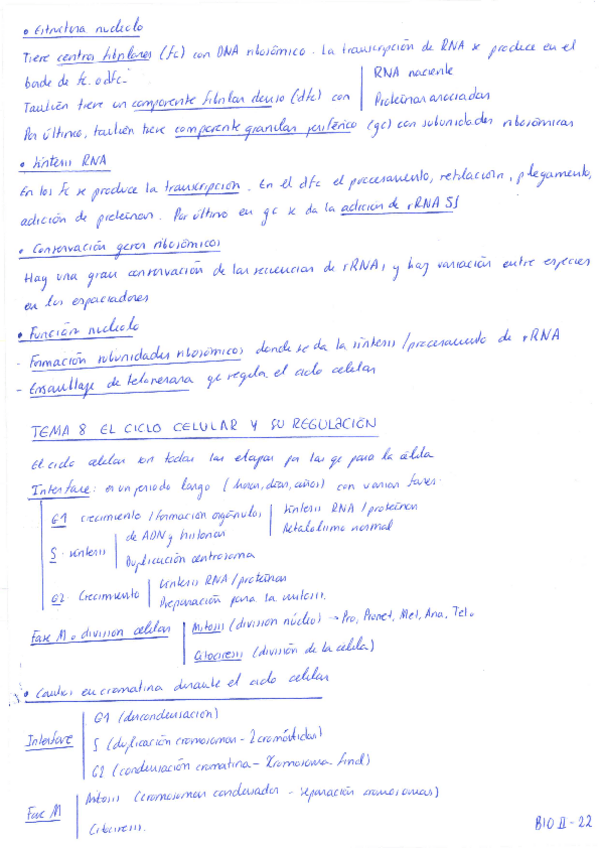 • Estructura nucleolo
Tiene centros fibrilares (fc) con DNA ribosómico. La transcripción de RNA se produce en el
borde de fc. o dfc.
También tiene un componente fibrilar denso (dfc) con | RNA naciente
Proteínas asociadas
Por último, también tiene componente granular periférico (gc) con subunidades ribosómicas
• Síntesis RNA
En los fc se produce la transcripción. En el dfc el procesamiento, metilación, plegamiento,
adición de proteínas. Por último en gc se da la adición de rRNA 5S
• Conservación genes ribosómicos
Hay una gran conservación de las secuencias de rRNAs y hay variación entre especies
en los espaciadores
• Función nucleolo
- Formación subunidades ribosómicas donde se da la síntesis/procesamiento de rRNA
- Ensamblaje de telomerasa qe regula el ciclo celular
TEMA 8 EL CICLO CELULAR Y SU REGULACIÓN
El ciclo celular son todas las etapas por las qe pasa la célula
Interfase: es un periodo largo (horas, días, años) con varias fases:
G1 crecimiento/formación orgánulos | Síntesis RNA/proteínas
Metabolismo normal
S - síntesis | de ADN y histonas
Duplicación centrosoma
G2. Crecimiento | Síntesis RNA/proteínas
Preparación para la mitosis.
Fase M o división celular | Mitosis (división núcleo) → Pro, Promet, Met, Ana, Tel.
Citocinesis (división de la célula)
• Cambios en cromatina durante el ciclo celular
Interfase | G1 (descondensación)
S (duplicación cromosomas - 2 cromátidas)
G2 (condensación cromatina - Xromosoma final)
Fase M | Mitosis (cromosomas condensados - separación cromosomas)
Citocinesis.
BIO II - 22